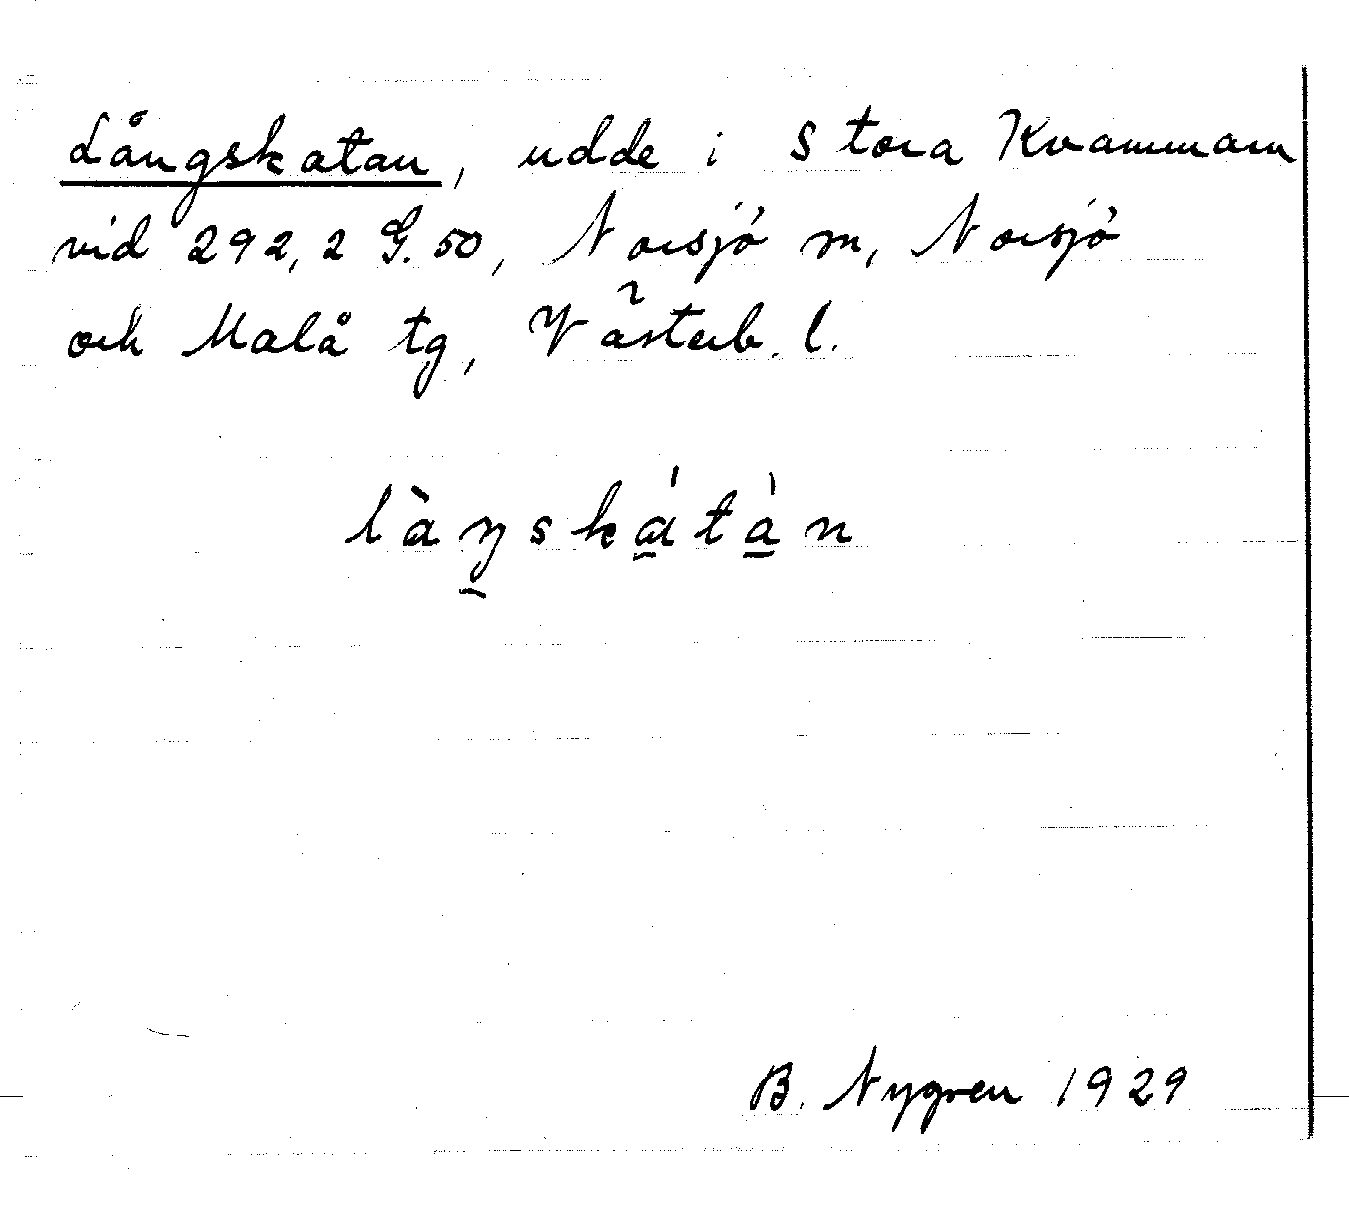 Långskatan, udde i Stora Kvammarn
vid 292,2 G. 50, Norsjö m, Norsjö
och Malå tg, Västerb. l.
làŋskátàn
B. Nygren 1929